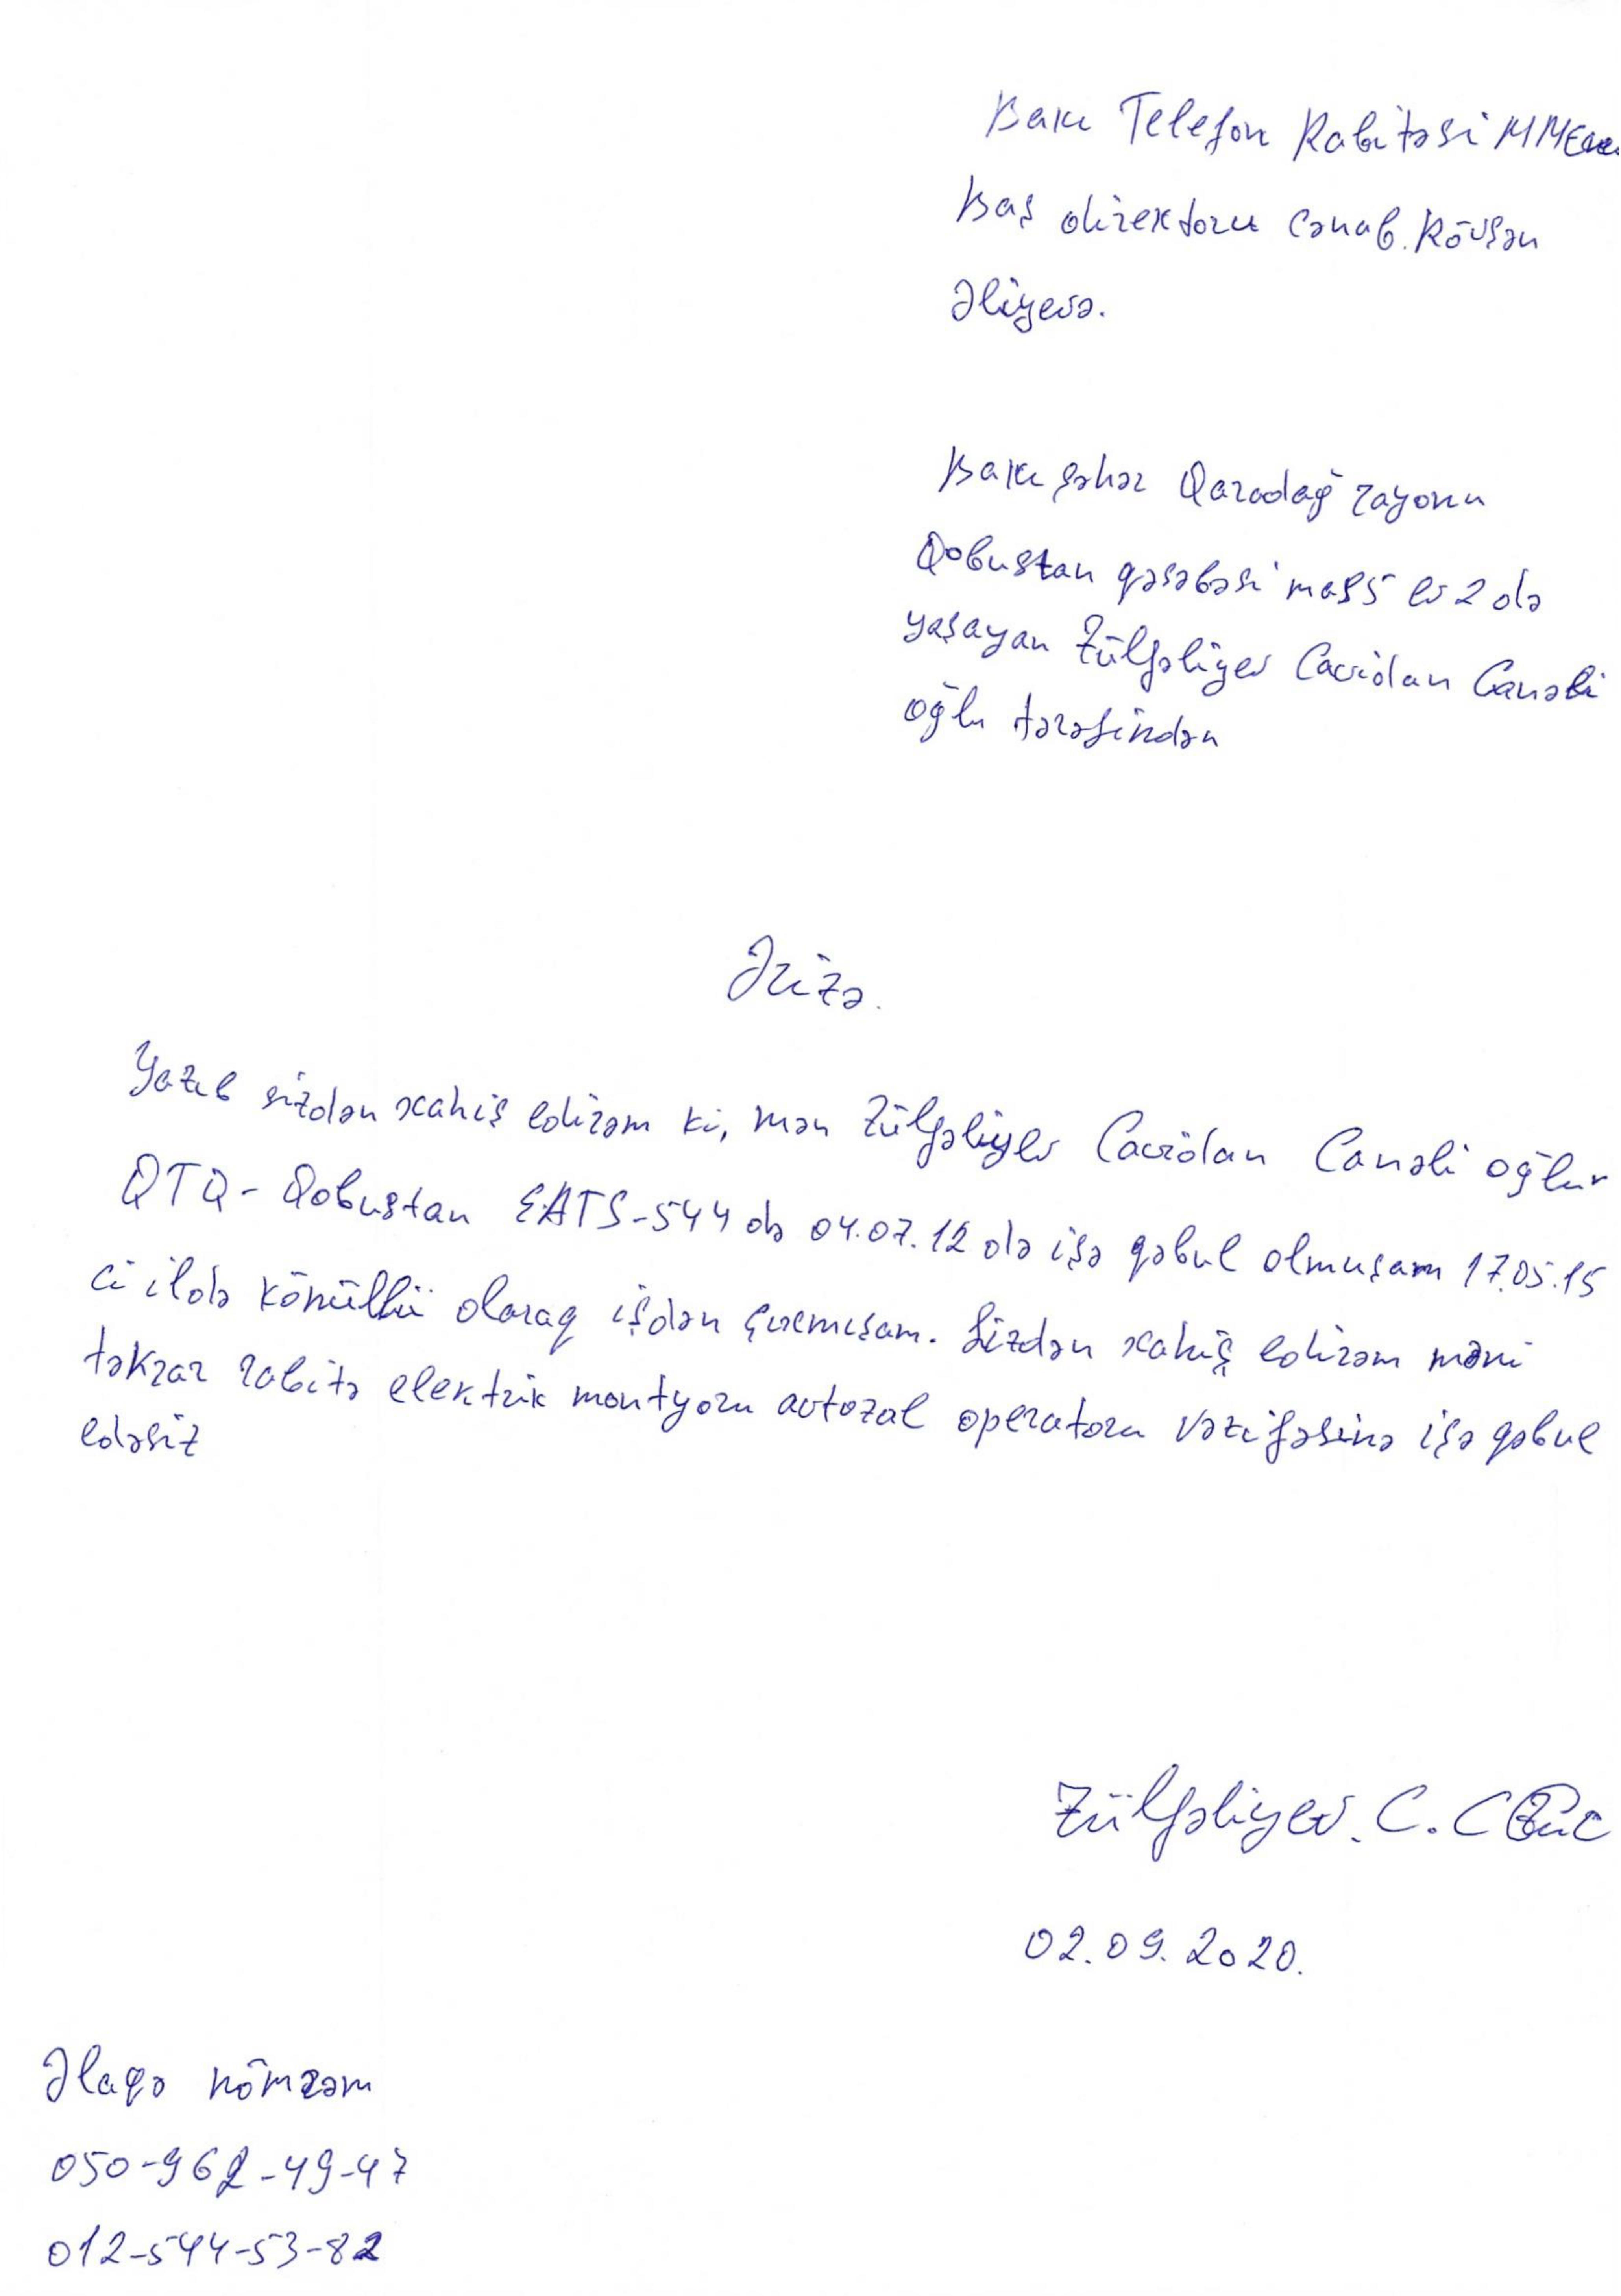 Bakı Telefon Rabitəsi MMC
Baş direktoru Cənab. Rövşən
Əliyevə.
Bakı şəhər Qaradağ rayonu
Qobustan qəsəbəsi mas 5 ev 2 də
yaşayan Zülfəliyev Cavidan Canəli
oğlu tərəfindən
Ərizə.
Yazıb sizdən xahiş edirəm ki, mən Zülfəliyev Cavidan Canəli oğlu
QTQ - Qobustan EATS-544 də 04.07.12 də işə qəbul olmuşam 17.05.15
ci ildə könüllü olaraq işdən çıxmışam. Sizdən xahiş edirəm məni
təkrar rabitə elektrik montyoru avtozal operatoru vəzifəsinə işə qəbul
edəsiz
Zülfəliyev. C. C
02.09.2020.
Əlaqə nömrəm
050-962-49-47
012-544-53-82